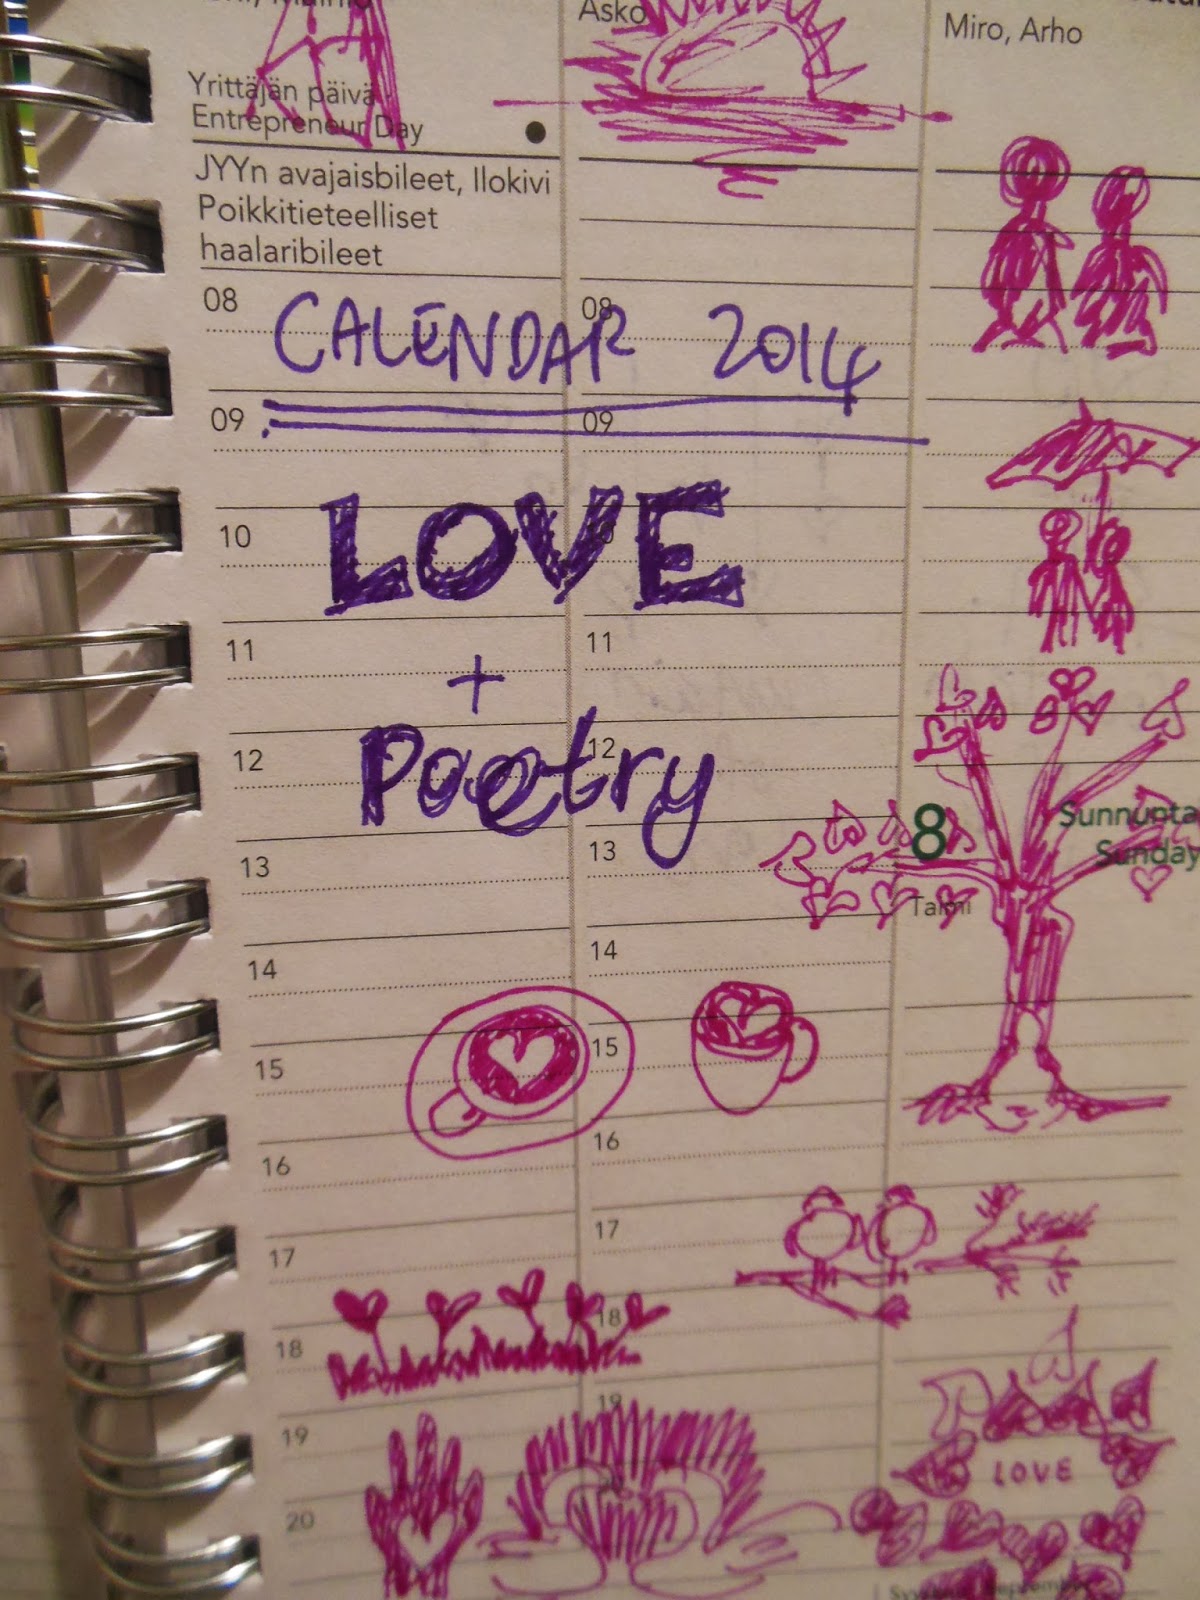 Asko
Miro, Arho
Yrittäjän päivä
Entrepreneur Day
JYYn avajaisbileet, Ilokivi
Poikkitieteelliset
haalaribileet
08
08
CALENDAR 2014
09
09
LOVE
10
11
11
+
12
12
Poetry
8
Sunnunta
Sunday
13
13
Taimi
14
14
15
15
16
16
17
17
18
18
19
19
LOVE
20